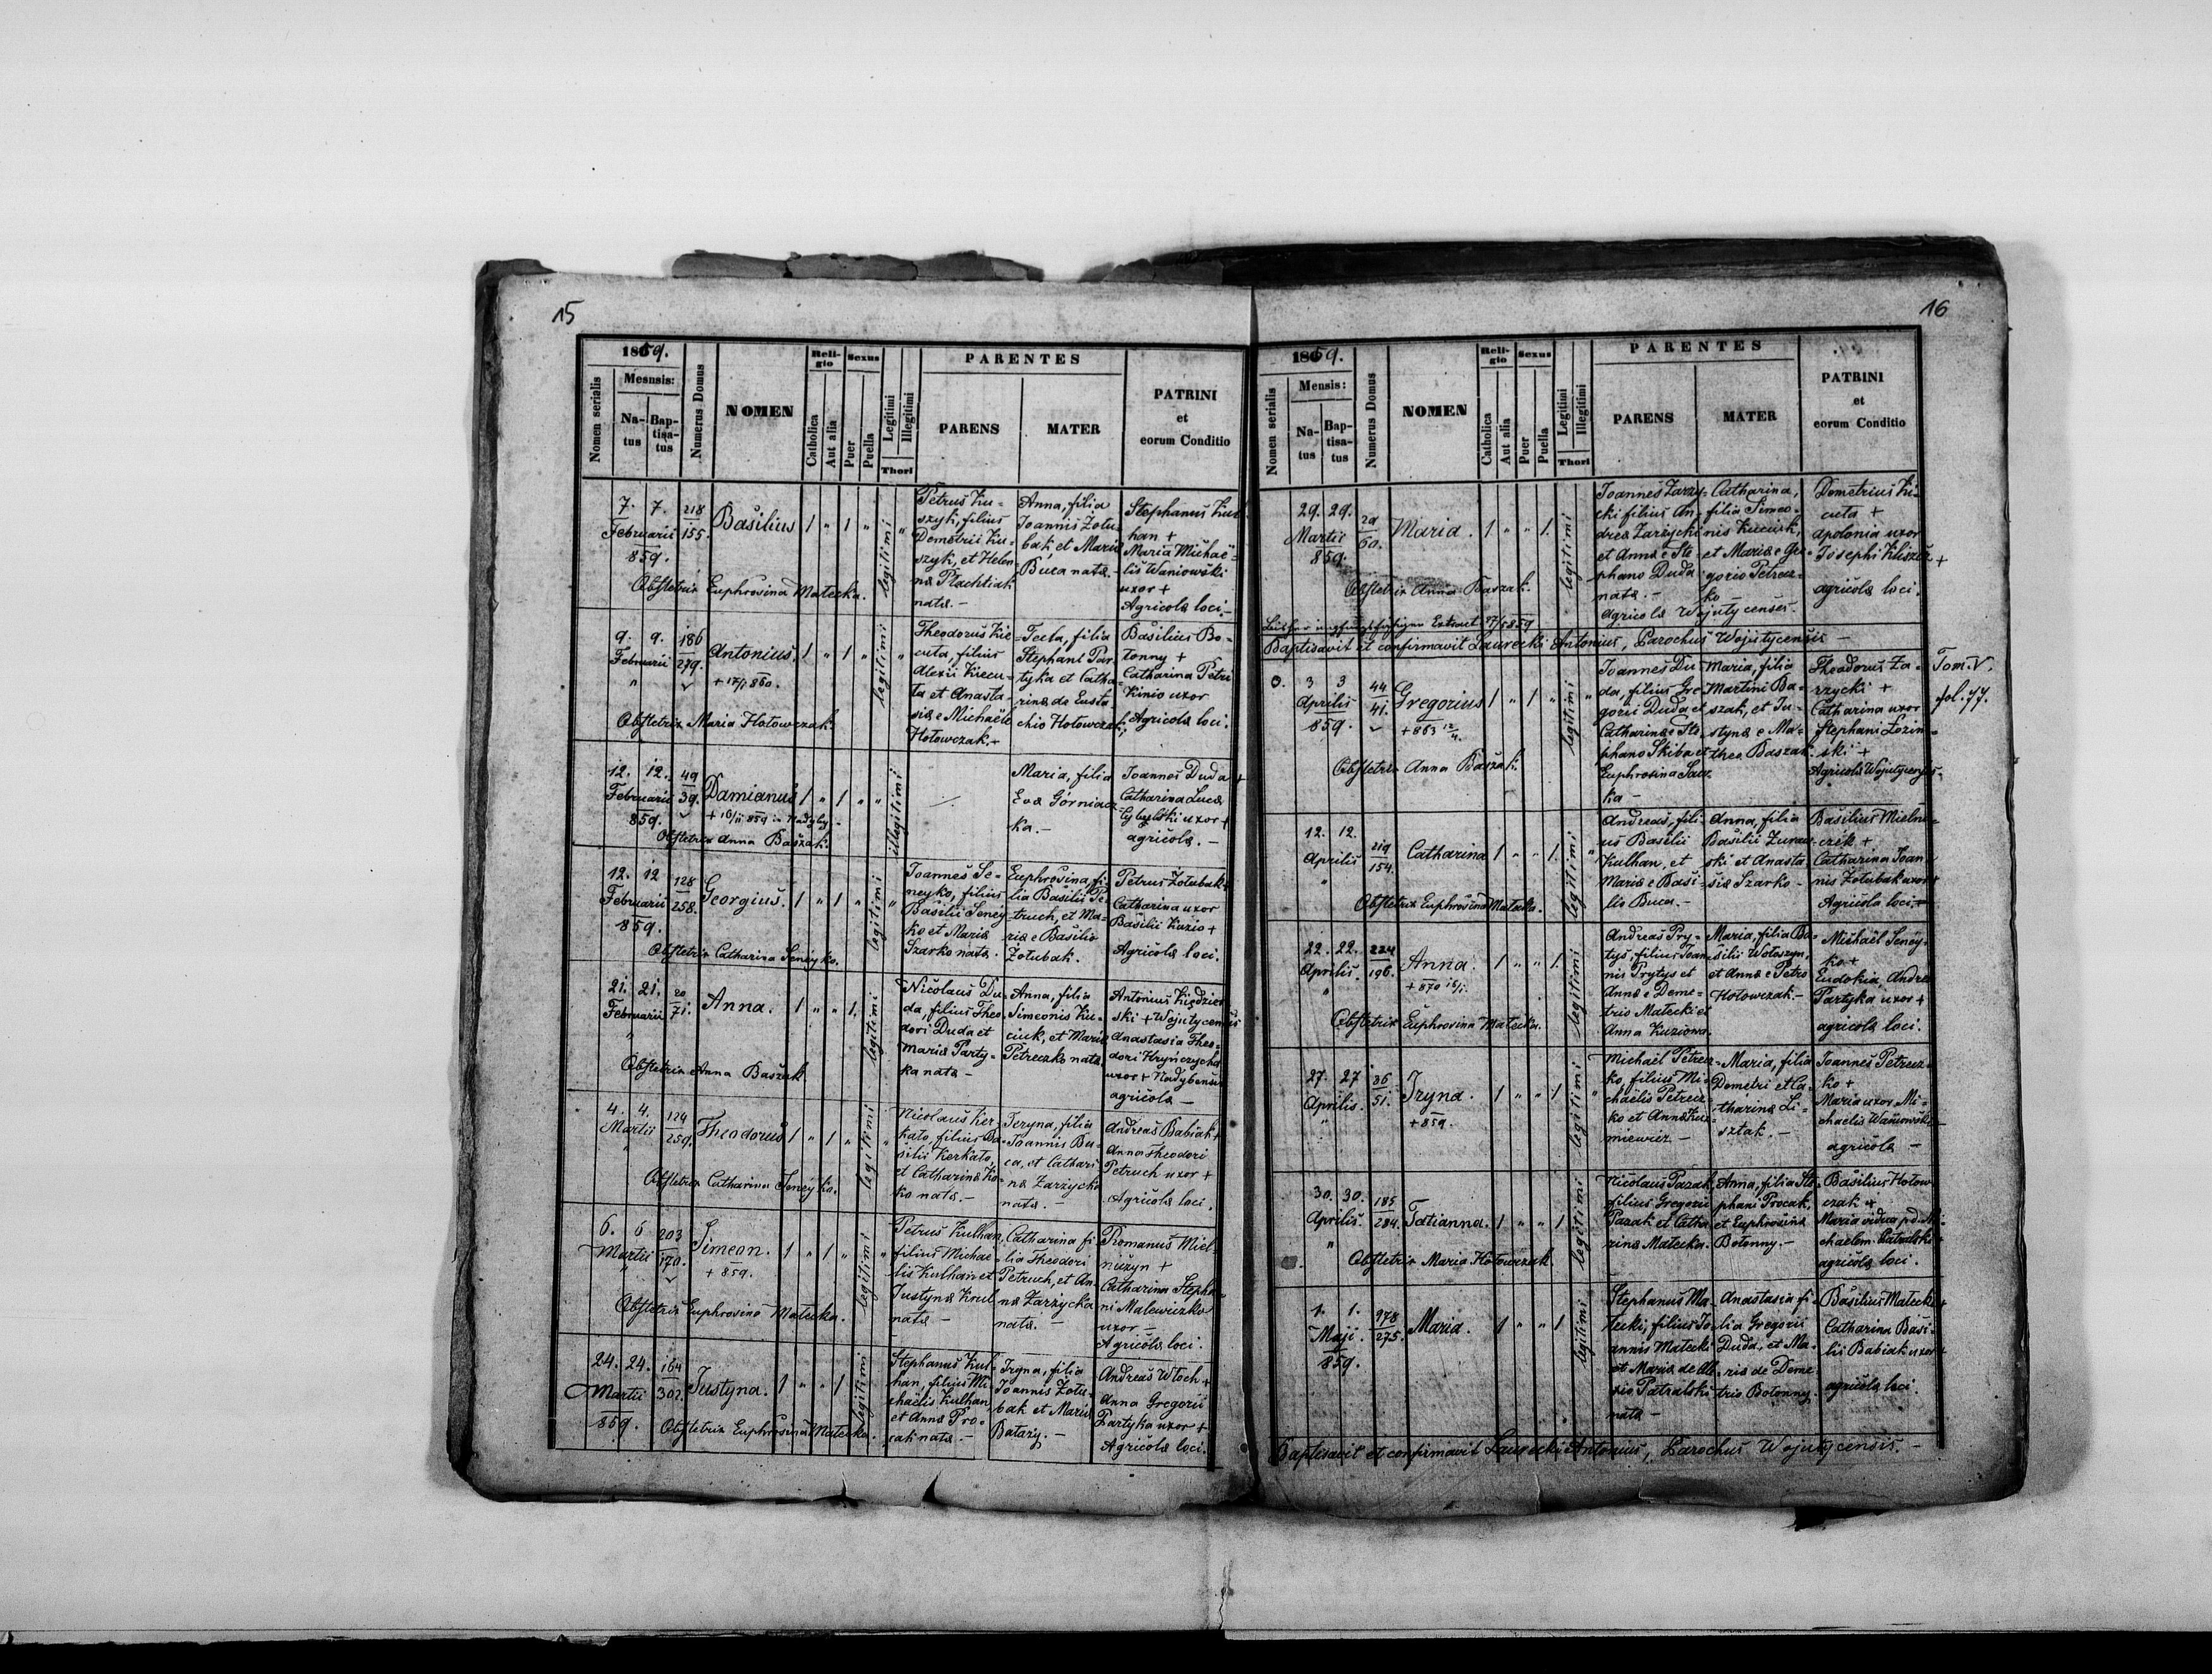 15
1859.
Mesnsis:
Nomen serialis
Na-
tus
Bap-
tisa-
tus
Numerus Domus
NOMEN
Reli-
gio
Catholica
Aut alia
Sexus
Puer
Puella
Legitimi
Illegitimi
Thori
PARENTES
PARENS
MATER
PATRINI
et
eorum Conditio
7. 7. 218
Februarii 155.
859.
Basilius 1 " 1 " legitimi "
Petrus Ku-
szyk, filius
Demetrii Ku-
szyk, et Hele-
na Plachtiak
nata. -
Anna, filia
Joannis Zotu-
bak, et Maria
Buca nata. -
Stephanus Kul
han +
Maria Michaë-
lis Waniowski
uxor +
Agricolæ loci. -
Obstetrix Euphrosina Matecka.
9. 9. 186
Februarii 279.
"
Antonius. 1 " 1 " legitimi "
+ 17/1 860.
Theodorus Kie-
cuta, filius
Alexii Kiecu-
ta et Anasta-
siæ e Michaële
Hotowczak. -
Tecla, filia
Stephani Par-
tyka et Catha-
rinæ de Eusta-
chio Hotowczak.
Basilius Bo-
tonny +
Catharina Petri
Kinio uxor
Agricolæ loci.
Obstetrix Maria Hotowczak.
12. 12. 49
Februarii 39.
859.
Damianus 1 " 1 " " illegitimi
+ 16/II 859 in Nadyby.
Maria, filia
Eva Górniac-
ka. -
Joannes Duda +
Catharina Lucæ
Cybulski uxor +
agricolæ. -
Obstetrix Anna Baszak.
12. 12 128
Februarii 258.
859.
Georgius. 1 " 1 " legitimi "
Joannes Se-
neyko, filius
Basilii Seney
ko et Maria
Szarko nata.
Euphrosina, fi-
lia Basilii Pe-
truch, et Ma-
riæ e Basilio
Zotubak.
Petrus Zotubak +
Catharina uxor
Basilii Kuzio +
Agricolæ loci.
Obstetrix Catharina Seneyko.
21. 21. 20
Februarii 71.
"
Anna. 1 " " 1. legitimi
Nicolaus Du-
da, filius Theo-
dori Duda et
Maria Party-
ka nata -
Anna, filia
Simeonis Ku-
ciuk, et Maria
Petreczko nata.
Antonius Kiędzier
ski + Wojutycensis
Anastasia Theo-
dori Hryńczycha
uxor + Nadybensis
agricolæ -
Obstetrix Anna Baszak.
4. 4. 124
Martii 259.
"
Theodorus 1 " 1 " legitimi "
Nicolaus Ker-
kato, filius Ba-
silii Kerkato,
et Catharina Ko-
ko nata. -
Jeryna, filia
Joannis Bu-
ca, et Cathari-
na Zarzycka
nata.
Andreas Babiak +
Anna Theodori
Petruch uxor +
Agricolæ loci.
Obstetrix Catharina Seneyko.
6. 6 203
Martii 170.
"
Simeon. 1 " 1 " legitimi "
+ 859.
Petrus Kulhan,
filius Michae-
lis Kulhan et
Justyna Krul
nata -
Catharina fi-
lia Theodori
Petruch, et An-
na Zarzycka
nata. -
Romanus Miel-
niczyn +
Catharina Stepha-
ni Malewiczko
uxor -
Agricolæ loci.
Obstetrix Euphrosina Matecka.
24. 24. 164
Martii 302.
859.
Justyna. 1 " " 1 legitimi
Stephanus Kul-
han, filius Mi-
chaëlis Kulhan,
et Anna Pro-
cak nata. -
Iryna, filia
Joannis Zotu-
bak et Maria
Batary. -
Andreas Wloch +
Anna Gregorii
Partyka uxor +
Agricolæ loci.
Obstetrix Euphrosina Matecka.
16
1859.
Mensis:
Nomen serialis
Na-
tus
Bap-
tisa-
tus
Numerus Domus
NOMEN
Reli-
gio
Catholica
Aut alia
Sexus
Puer
Puella
Legitimi
Illegitimi
Thori
PARENTES
PARENS
MATER
PATRINI
et
eorum Conditio
29. 29. 20
Martii 60.
859.
Maria. 1 " " 1. legitimi
Joannes Zarzy-
cki filius An-
dreæ Zarzycki
et Annæ e Ste-
phano Duda
nata. -
Agricolæ Wojutycenses. -
Catharina,
filia Simeo-
nis Kuciuk,
et Mariæ e Gre-
gorio Petrecz-
ko -
Demetrius Kie-
cuta +
Apolonia uxor
Josephi Kliszcz +
agricolæ loci.
Obstetrix Anna Baszak.
Extract 27/5 859
Baptisavit et confirmavit Laurecki Antonius, Parochus Wojutycensis -
3 3 44
Aprilis 41.
859.
Gregorius 1 " 1 " legitimi "
+ 863 12/4.
Joannes Du-
da, filius Gre-
gorii Duda et
Catharinæ e Ste-
phano Skiba et
Euphrosina Sau-
ka -
Maria, filia
Martini Ba-
szak, et Ju-
stynæ e Ma-
theo Baszak.
Theodorus Za-
rzycki +
Catharina uxor
Stephani Łozin-
ski +
Agricolæ Wojutycenses.
Tom. V.
fol. 77.
Obstetrix Anna Baszak.
12. 12. 219
Aprilis 154.
"
Catharina 1 " " 1. legitimi "
Andreas, fili-
us Basilii
Kulhan, et
Mariæ e Basi-
lio Buca. -
Anna, filia
Basilii Zuraw-
ski et Anasta-
siæ Szarko -
Basilius Mielni-
czek +
Catharina Joan-
nis Zotubak uxor +
Agricolæ loci. -
Obstetrix Euphrosina Matecka.
22. 22. 224
Aprilis. 196.
"
Anna. 1 " " 1. legitimi
+ 870 16/1.
Andreas Pry-
tys, filius Joan-
nis Prytys et
Annæ e Deme-
trio Matecki et
Anna Kuziowa.
Maria, filia Ba-
silii Wotoszyn,
et Annæ e Petro
Hotowczak. -
Michaël Seney-
ko +
Eudokia Andreæ
Partyka uxor +
agricolæ loci.
Obstetrix Euphrosina Matecka.
27. 27 86
Aprilis. 51.
"
Iryna. 1 " " 1 legitimi "
+ 859.
Michaël Petrecz-
ko, filius Mi-
chaëlis Petrecz-
ko et Anna Kuz-
miewicz -
Maria, filia
Demetri et Ca-
tharina Li-
sztak. -
Joannes Petrecz-
ko +
Maria uxor Mi-
chaelis Waniowski -
agricolæ -
30. 30. 185
Aprilis. 284.
"
Tatianna. 1 " " 1 legitimi
Nicolaus Pazak,
filius Gregorii
Pazak et Catha-
rina Matecka.
Anna, filia Ste-
phani Procak,
et Euphrosina
Botonny. -
Basilius Hotow-
czak +
Maria vidua p.d. Mi-
chaelem Patralski +
agricolæ loci.
Obstetrix Maria Hotowczak.
1. 1. 978
Maji. 275.
859.
Maria. 1 " " 1 legitimi
Stephanus Ma-
tecki, filius Jo-
annis Matecki
et Maria de Ale-
xio Patralski
nata -
Anastasia fi-
lia Gregorii
Duda, et Ma-
ria de Deme-
trio Botonny.
Basilius Matecki +
Catharina Basi-
lii Babiak uxor +
agricolæ loci.
Baptisavit et confirmavit Laurecki Antonius, Parochus Wojutycensis. -